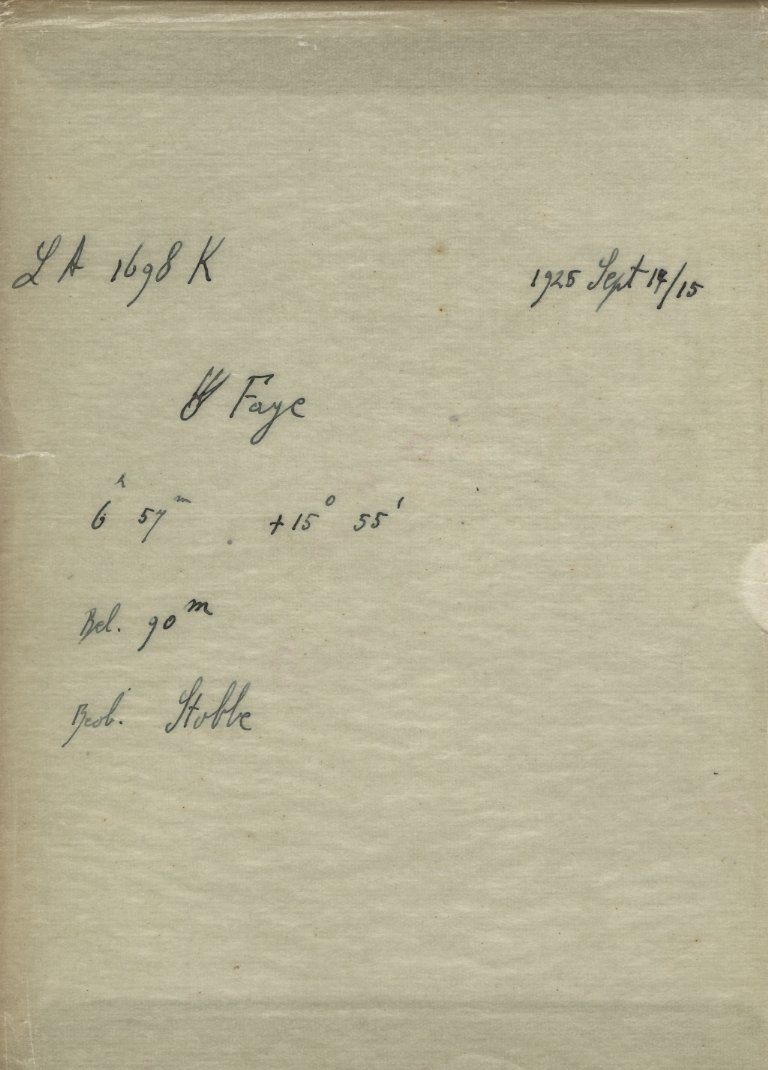 LA 1698 K 1925 Sept 14/15
Faye
6ʰ 57ᵐ +15° 55'
Bel. 90ᵐ
Beob. Stobbe